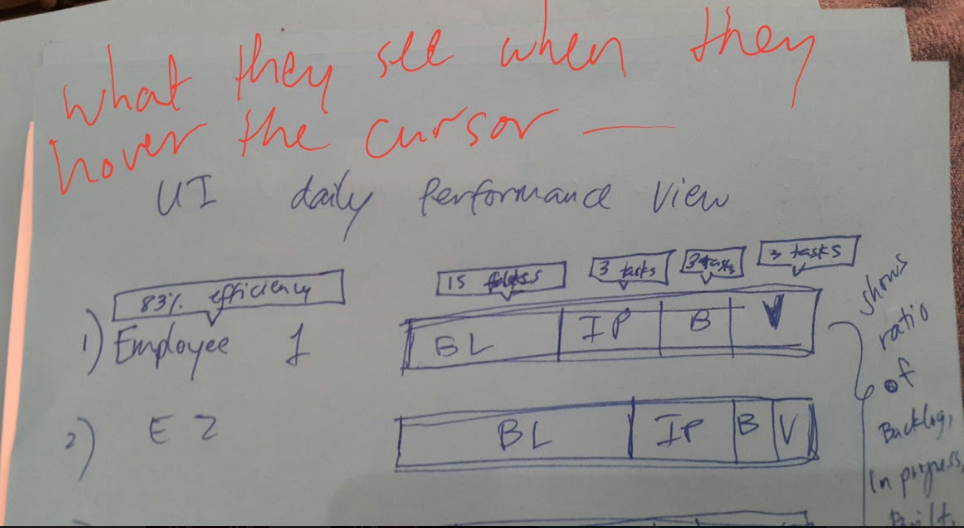 what they see when they
hover the cursor —
UI daily performance view
83% efficiency
15 tasks
3 tasks
3 tasks
3 tasks
1) Employee 1
BL IP B V
2) E 2
BL IP B V
shows
ratio
of
Backlog,
In progress,
Built,